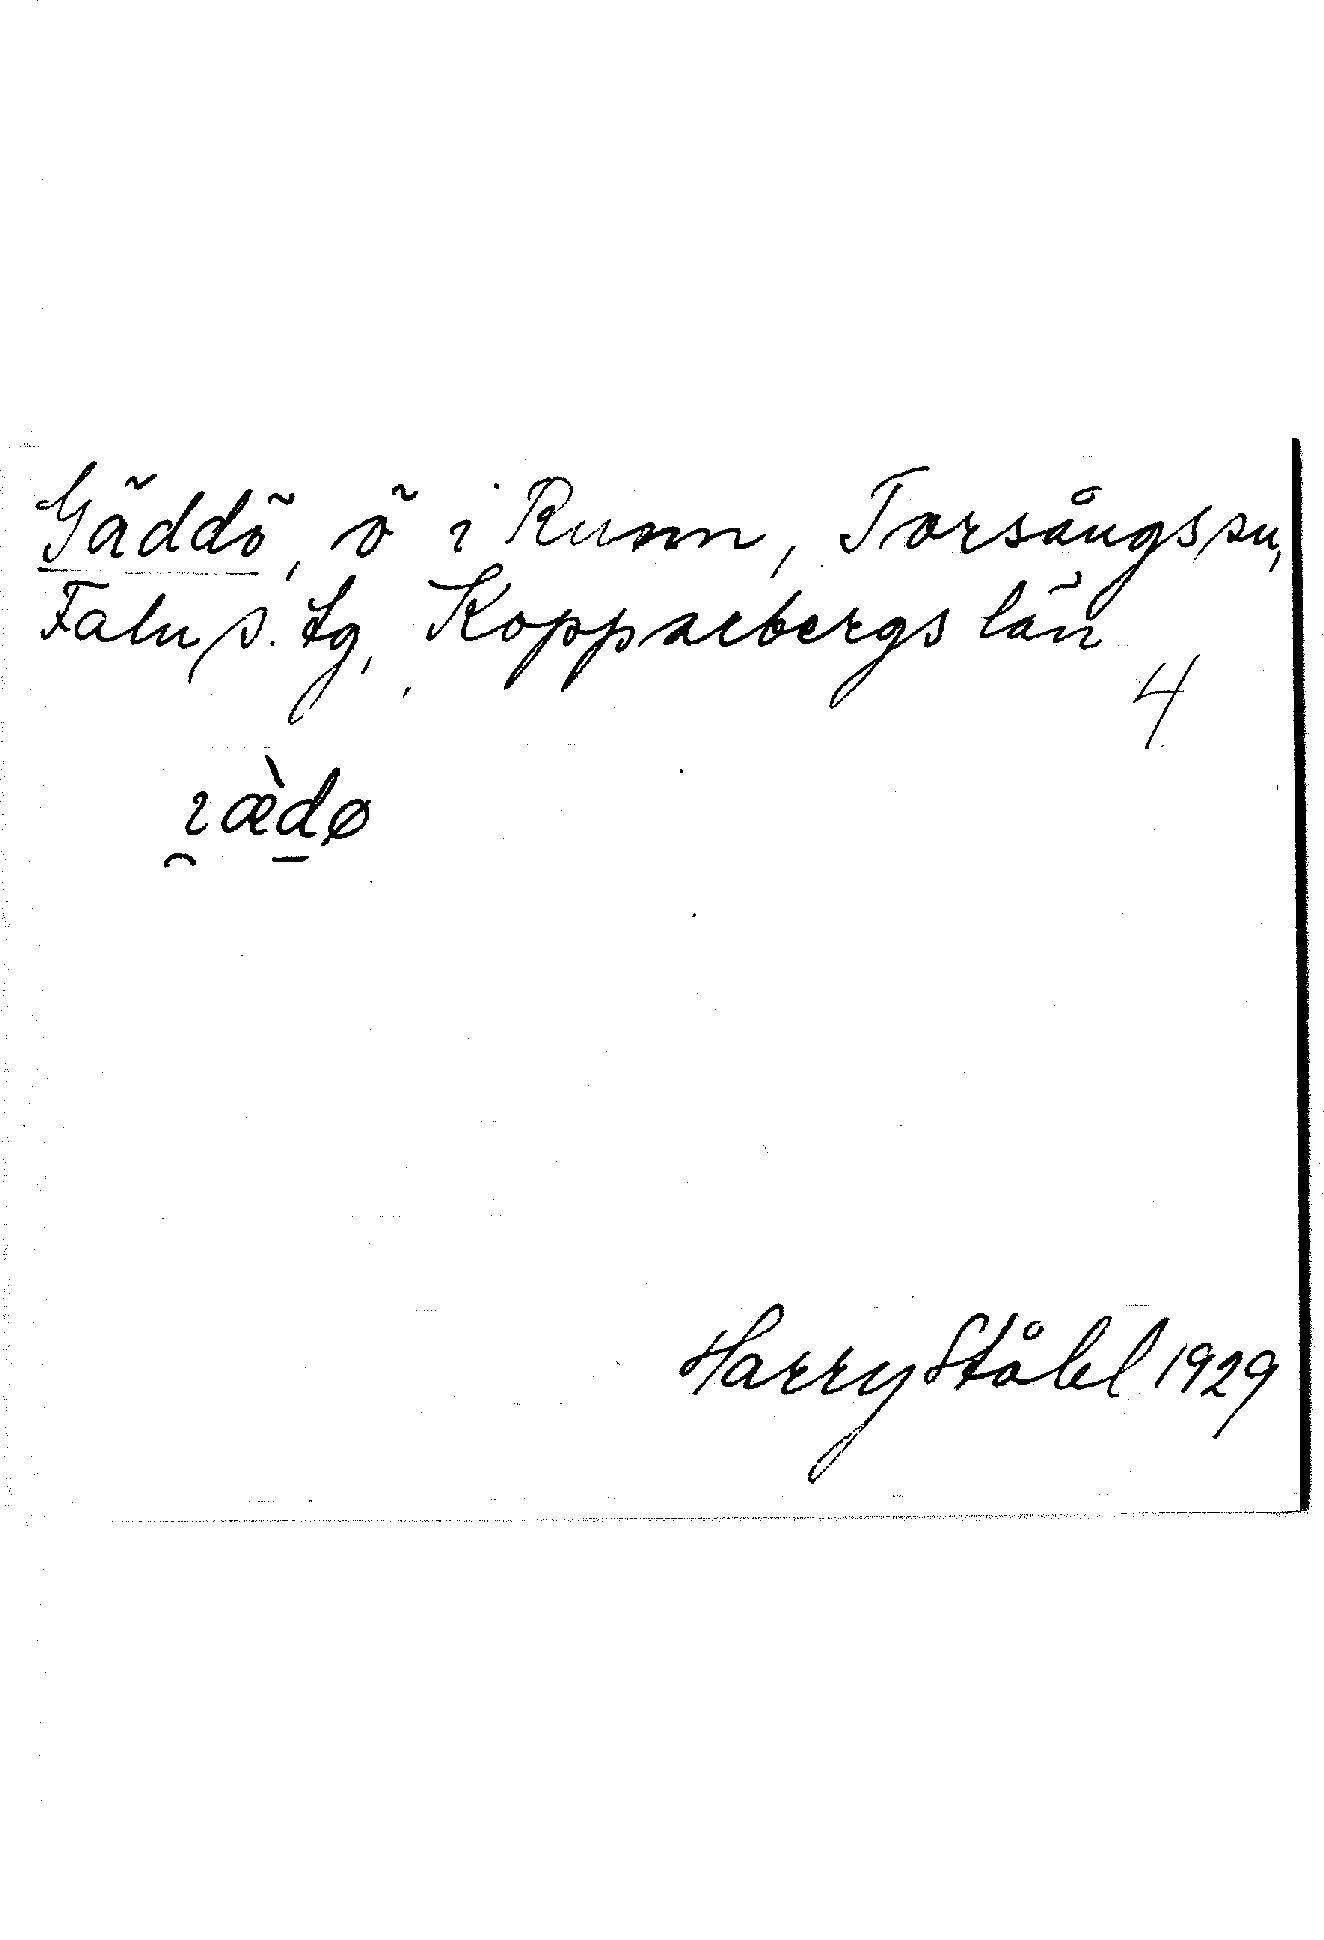 Gäddö, ö i Runn, Torsångs sn,
Falu s. tg, Kopparbergs län
4
ı̯æ̀d̲ø
Harry Ståhl 1929